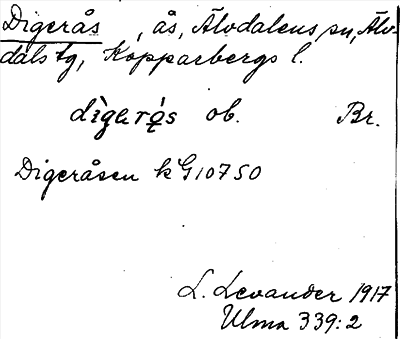 Digerås, ås, Älvdalens sn, Älv-
dals tg, Kopparbergs l.
dìgerɑ́s ob. Br.
Digeråsen k G10750
L. Levander 1917
Ulma 339:2